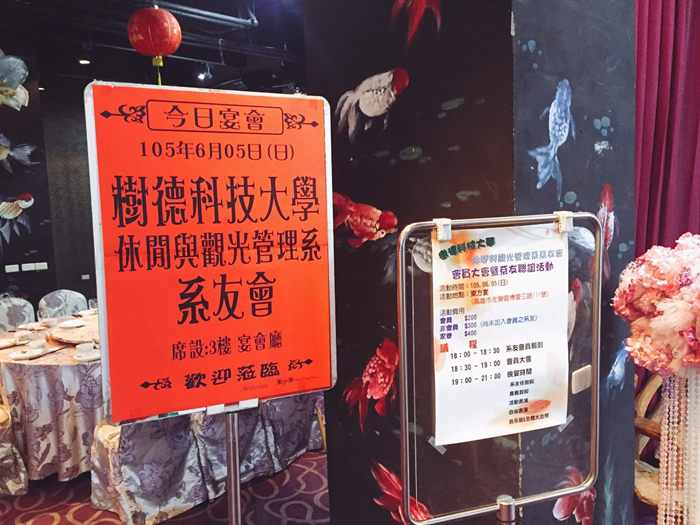 今日宴會
105年6月05日(日)
樹德科技大學
休閒與觀光管理系
系友會
席設:3樓 宴會廳
歡迎蒞臨
Welcome
樹德科技大學
休閒與觀光管理系系友會
會員大會暨系友聯誼活動
活動時間:105.06.05(日)
活動地點:東方宴
(高雄市左營區博愛三路11號)
活動費用
會員 $200
非會員 $300 (尚未加入會員之系友)
家眷 $400
議 程
18:00 - 18:30 系友會員報到
18:30 - 19:00 會員大會
19:00 - 21:00 晚宴時間
系主任致詞
貴賓致詞
活動表演
自由表演